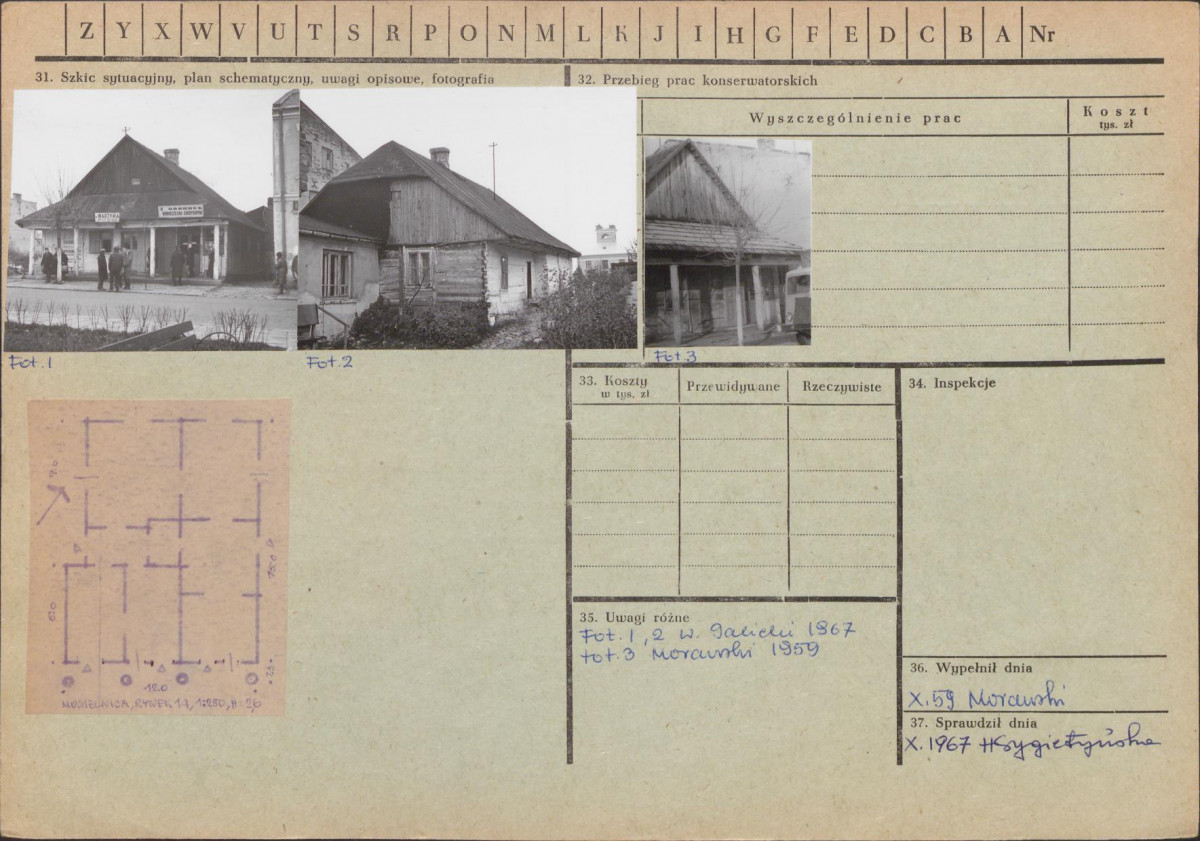 Z Y X W V U T S R P O N M L K J I H G F E D C B A Nr
31. Szkic sytuacyjny, plan schematyczny, uwagi opisowe, fotografia
32. Przebieg prac konserwatorskich
Wyszczególnienie prac
Koszt
tys. zł
Fot. 1
Fot. 2
Fot. 3
33. Koszty
w tys. zł
Przewidywane
Rzeczywiste
34. Inspekcje
12.0
MOGIELNICA, RYNEK 14, 1:250, H=
35. Uwagi różne
Fot. 1, 2 W. Galicki 1967
fot. 3 Morawski 1959
36. Wypełnił dnia
X. 59 Morawski
37. Sprawdził dnia
X. 1967 HSygietyńska